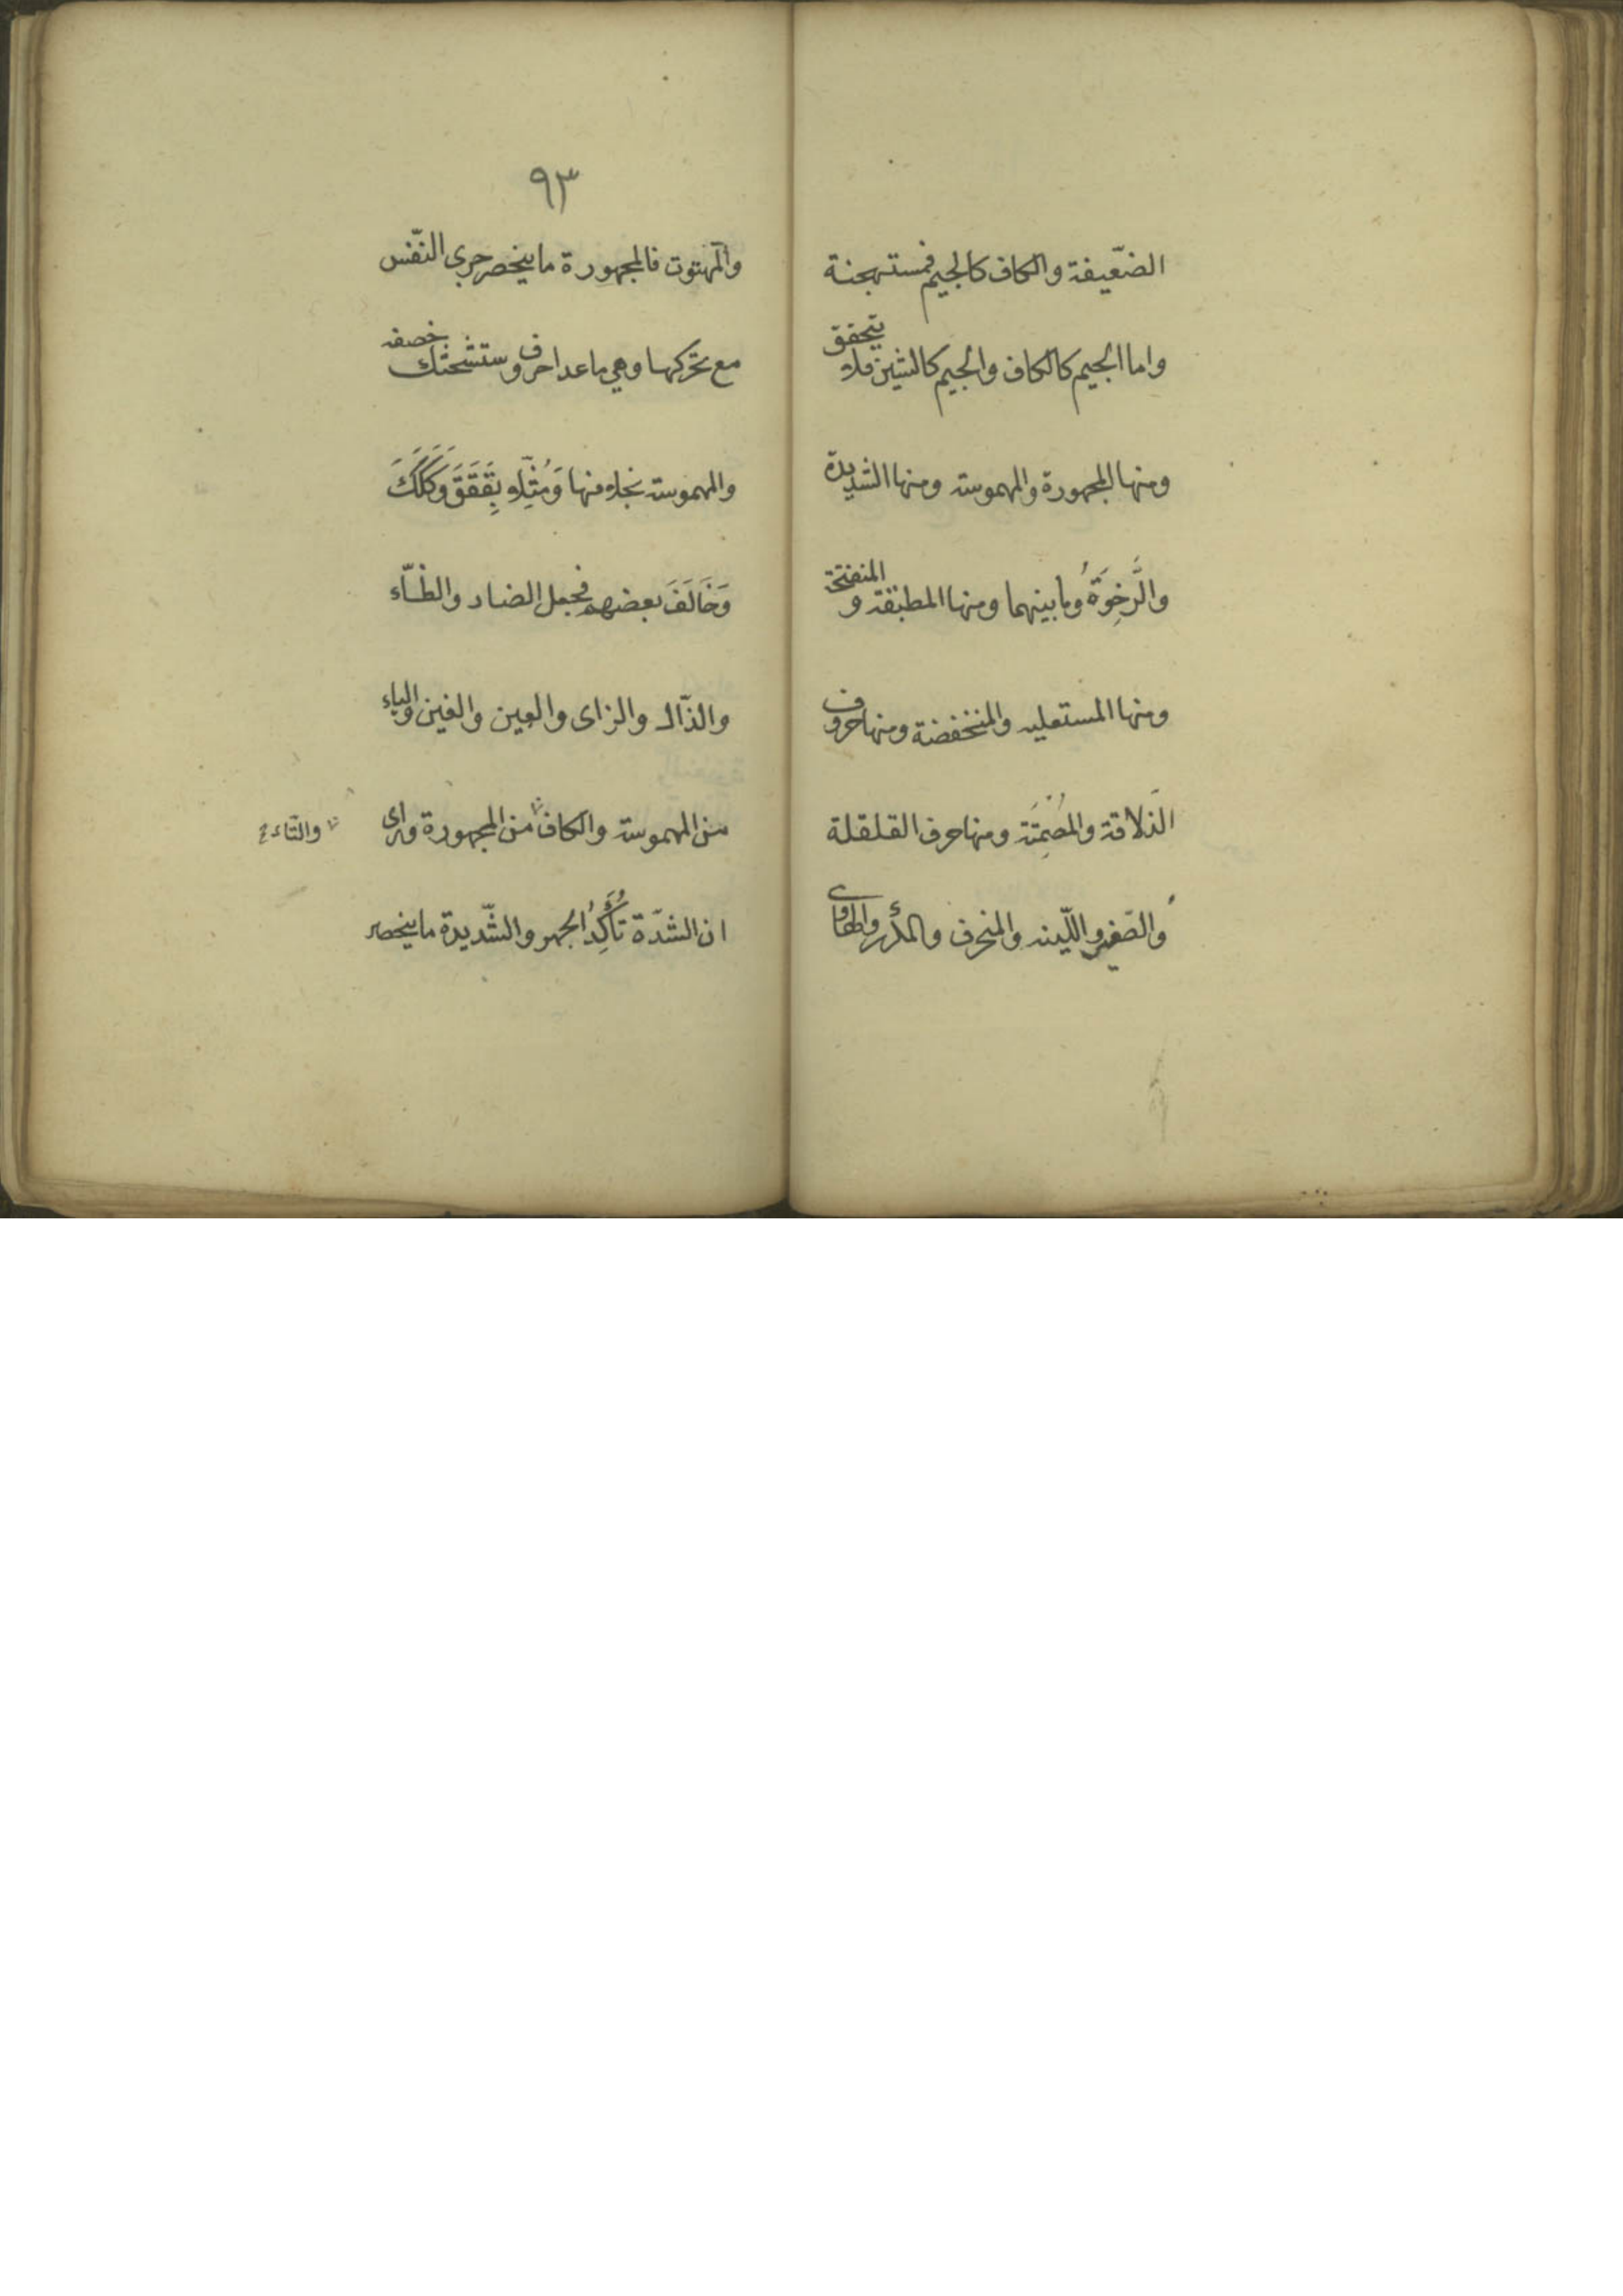 الضّعيفة والكاف كالجيم فمستهجنة
واما الجيم كالكاف والجيم كالشين فلا يتحقق
ومنها المجهورة والمهموسة ومنها الشديدة
والرَّخِوَةُ وما بينهما ومنها المطبقة و المنفتحة
ومنها المستعليه والمنخفضة ومنها حروف
الذلاقة والمُصْمِتَة ومنها حروف القلقلة
والصّفير واللّينه والمنحرف والمكرّر والهاوى
٩٣
والمهتوت فالمجهورة ما ينحصر جرى النّفس
مع تحركها وهي ما عدا حروف ستشحثك خصفه
والمهموسة بخلافها وَمُثِّلا بِقَقَقَ وَكَكَكَ
وَخَالَفَ بعضهم فجعل الضاد والظّاء
والذّال والزاى والعين والغين والياء
من المهموسة والكاف من المجهورة وراى
والتّاء
ان الشدّة تُأَكِّدُ الجهر والشّديدة ما ينحصر